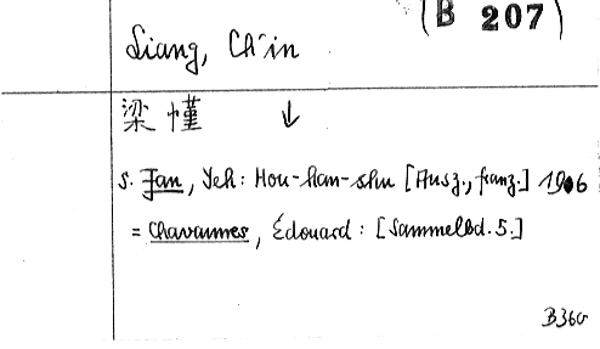 (B 207)
Liang, Ch'in
梁慬 ↓
s. Fan, Yeh: Hou-han-shu [Ausz., franz.] 1906
= Chavannes, Édouard: [Sammelbd. 5.]
B360